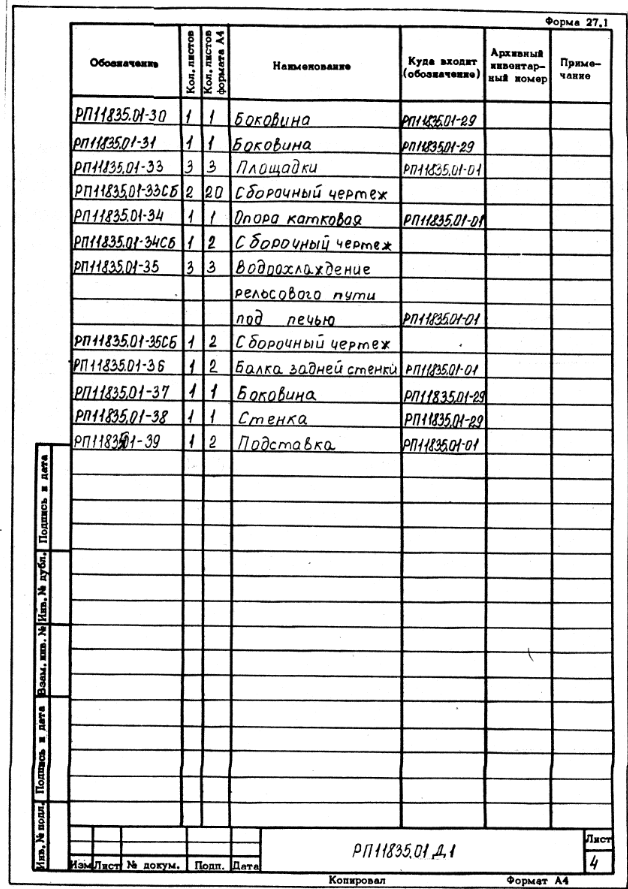 Форма 27.1
Обозначение Кол. листов Кол. листов формата А4 Наименование Куда входит (обозначение) Архивный инвентарный номер Примечание
РП11835.01-30 1 1 Боковина РП11835.01-29
РП11835.01-31 1 1 Боковина РП11835.01-29
РП11835.01-33 3 3 Площадки РП11835.01-01
РП11835.01-33СБ 2 20 Сборочный чертеж
РП11835.01-34 1 1 Опора катковая РП11835.01-01
РП11835.01-34СБ 1 2 Сборочный чертеж
РП11835.01-35 3 3 Водоохлаждение
рельсового пути
под печью РП11835.01-01
РП11835.01-35СБ 1 2 Сборочный чертеж
РП11835.01-36 1 2 Балка задней стенки РП11835.01-01
РП11835.01-37 1 1 Боковина РП11835.01-29
РП11835.01-38 1 1 Стенка РП11835.01-29
РП11835.01-39 1 2 Подставка РП11835.01-01
Подпись и дата
Инв. № дубл.
Взам. инв. №
Подпись и дата
Инв. № подл.
РП11835.01 Д.1
Лист
4
Изм Лист № докум. Подп. Дата
Копировал Формат А4